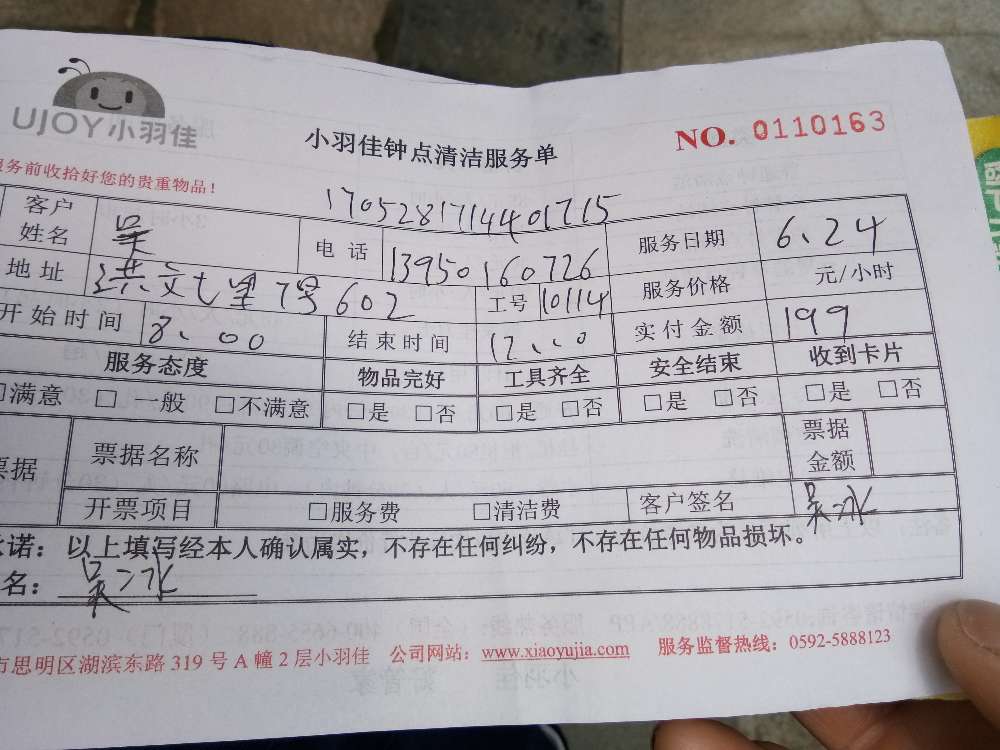 UJOY小羽佳
小羽佳钟点清洁服务单
NO. 0110163
服务前收拾好您的贵重物品!
1705281714401715
客户姓名 吴 电话 13950160726 服务日期 6.24
地址 洪文七里7号602 工号 10114 服务价格 元/小时
开始时间 8:00 结束时间 12:00 实付金额 199
服务态度 物品完好 工具齐全 安全结束 收到卡片
□满意 □一般 □不满意 □是 □否 □是 □否 □是 □否 □是 □否
票据 票据名称 票据金额
开票项目 □服务费 □清洁费 客户签名 吴
承诺:以上填写经本人确认属实,不存在任何纠纷,不存在任何物品损坏。
名: 吴
市思明区湖滨东路 319 号 A 幢 2 层小羽佳 公司网站:www.xiaoyujia.com 服务监督热线:0592-5888123